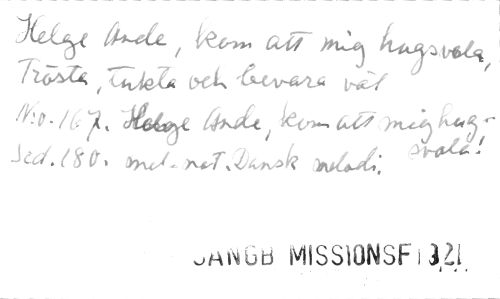 Helge Ande, kom att mig hugsvala,
Trösta, tukta och bevara väl
N:o. 167. Helge Ande, kom att mig hug-
svala!
Sid. 180. mel. not. Dansk melodi.
SANGB MISSIONSF 1321